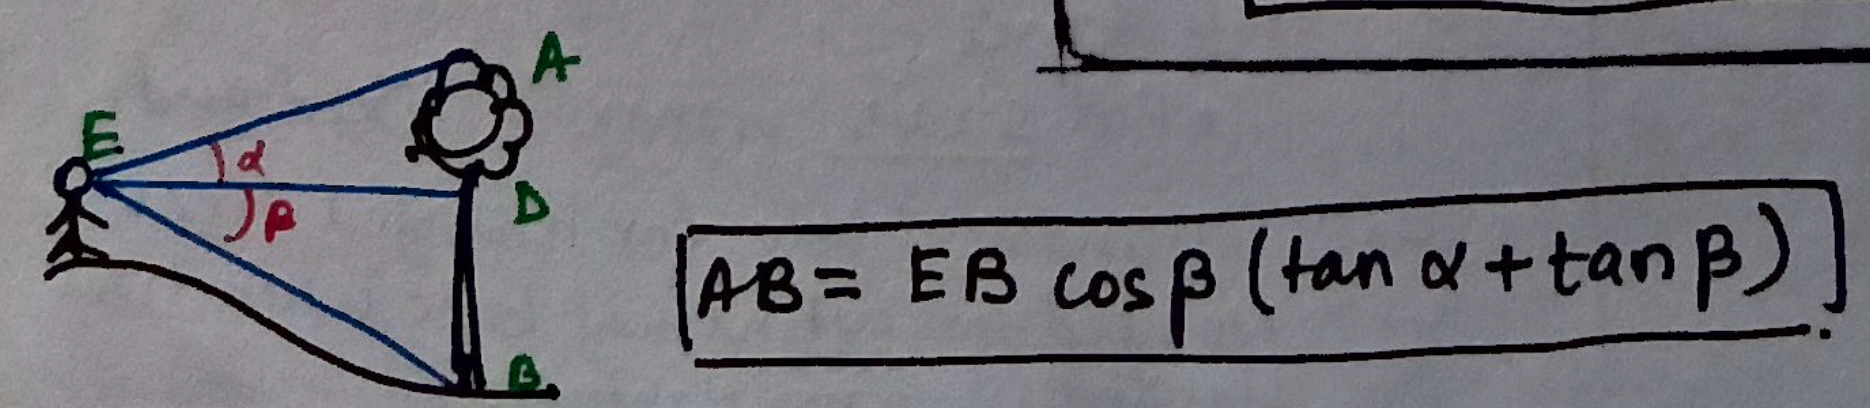 A
E
α
D
β
AB = EB cos β (tan α + tan β)
B